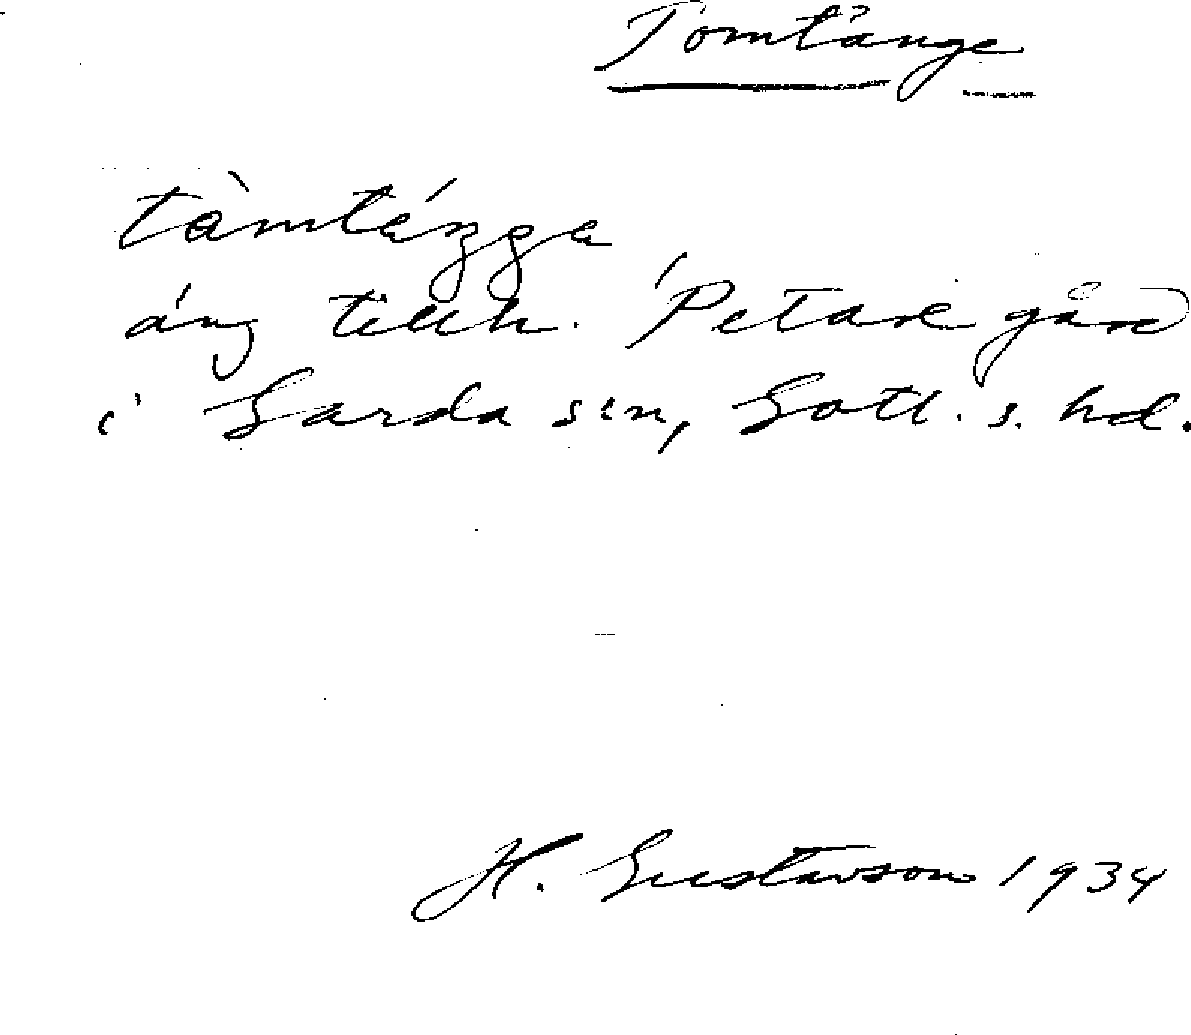 Tomtänge
tòmtéŋga
äng tillh. Petare gård
i Garda sin, Gotl. s. hd.
H. Gustavson 1934